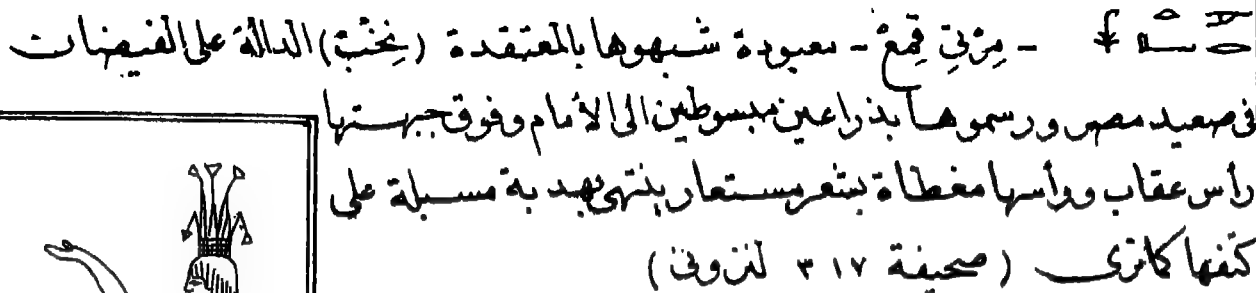 - مِرْتِي قِمِعْ - معبودة شبهوها بالمعتقدة (نِخْبْة) الدالة على الفيضات
فى صعيد مصر ورسموها بذراعين مبسوطين الى الأمام وفوق جبهتها
رأس عقاب ورأسها مغطاة بشعر مستعار ينتهى بهدبة مسبلة على
كتفها كما ترى (صحيفة ٣١٧ لنزونى)